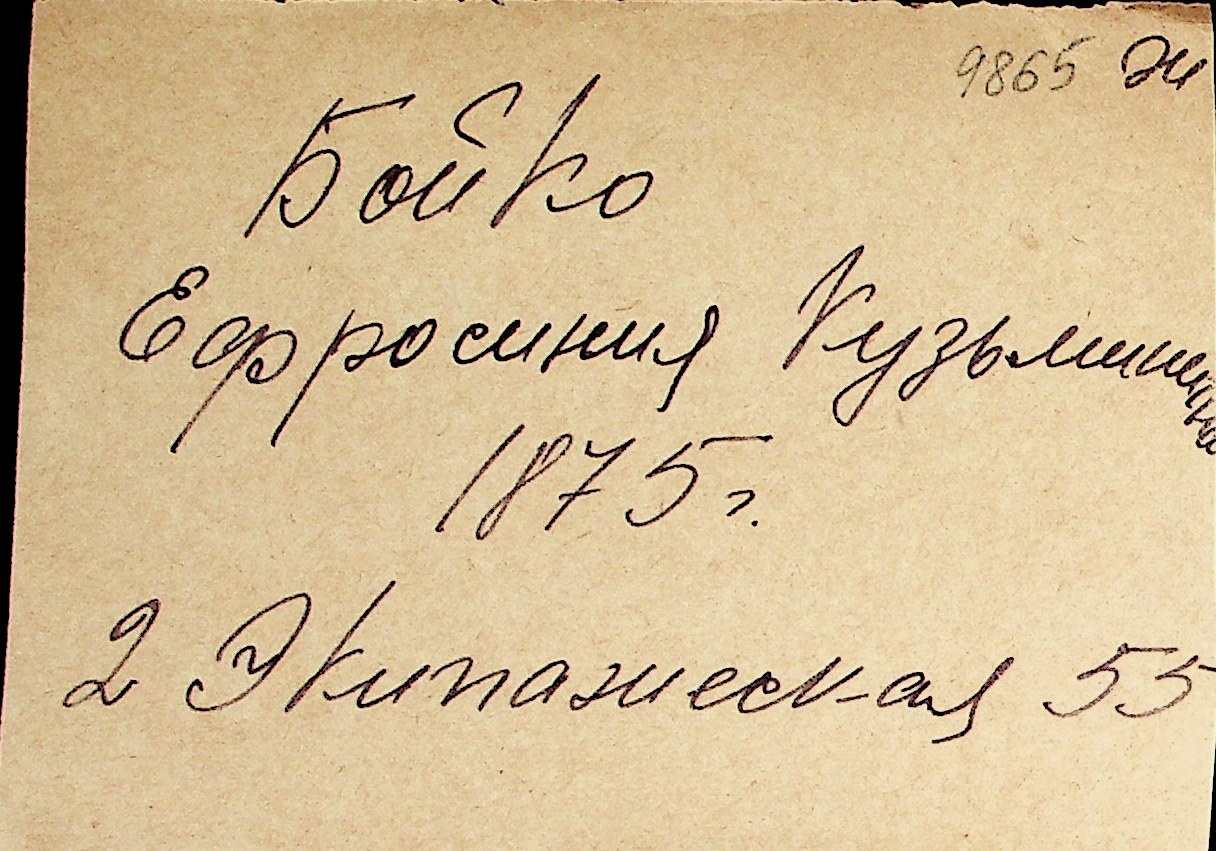 9865 Ж
Бойко
Ефросиния Кузьминична
1875 г.
2 Экипажеская 55